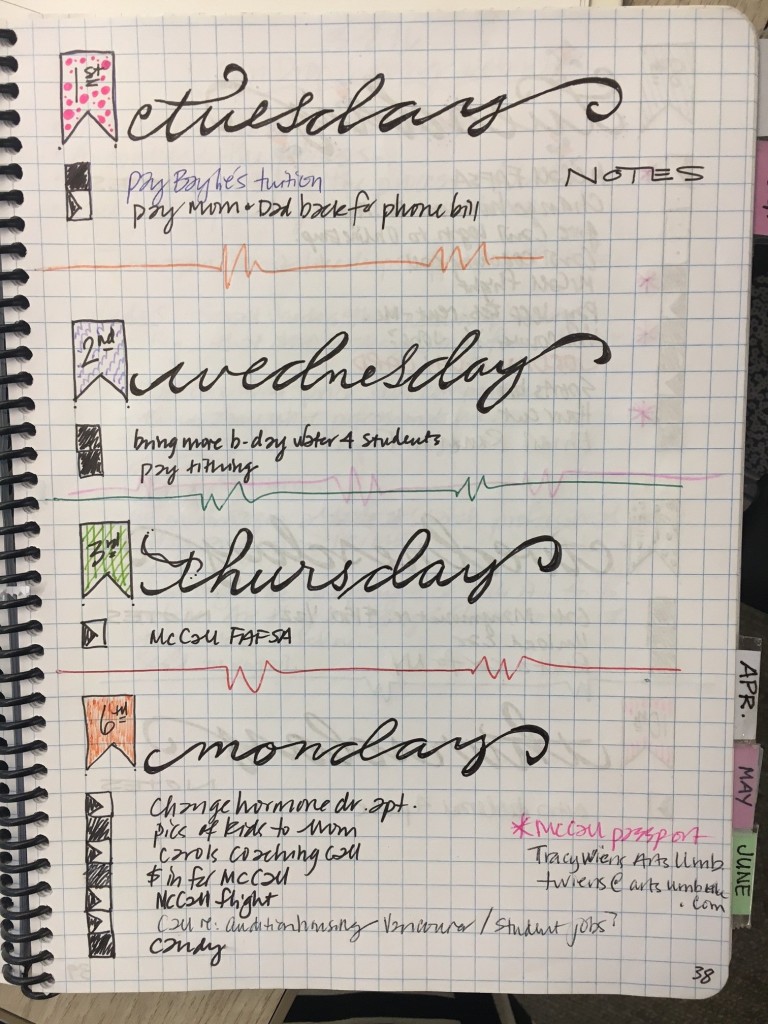 1st
tuesday
NOTES
pay Baylie's tuition
pay mom & Dad back for phone bill
2nd
wednesday
bring more b-day water 4 students
pay tithing
3rd
thursday
McCall FAFSA
6th
monday
change hormone dr. apt.
pics of kids to Mom
carols coaching call
$ in for McCall
McCall flight
call re: audition housing Vancouver / student jobs?
candy
*McCall passport
Tracy Wiens Arts Umb
twiens@arts
.com
APR.
MAY
JUNE
38